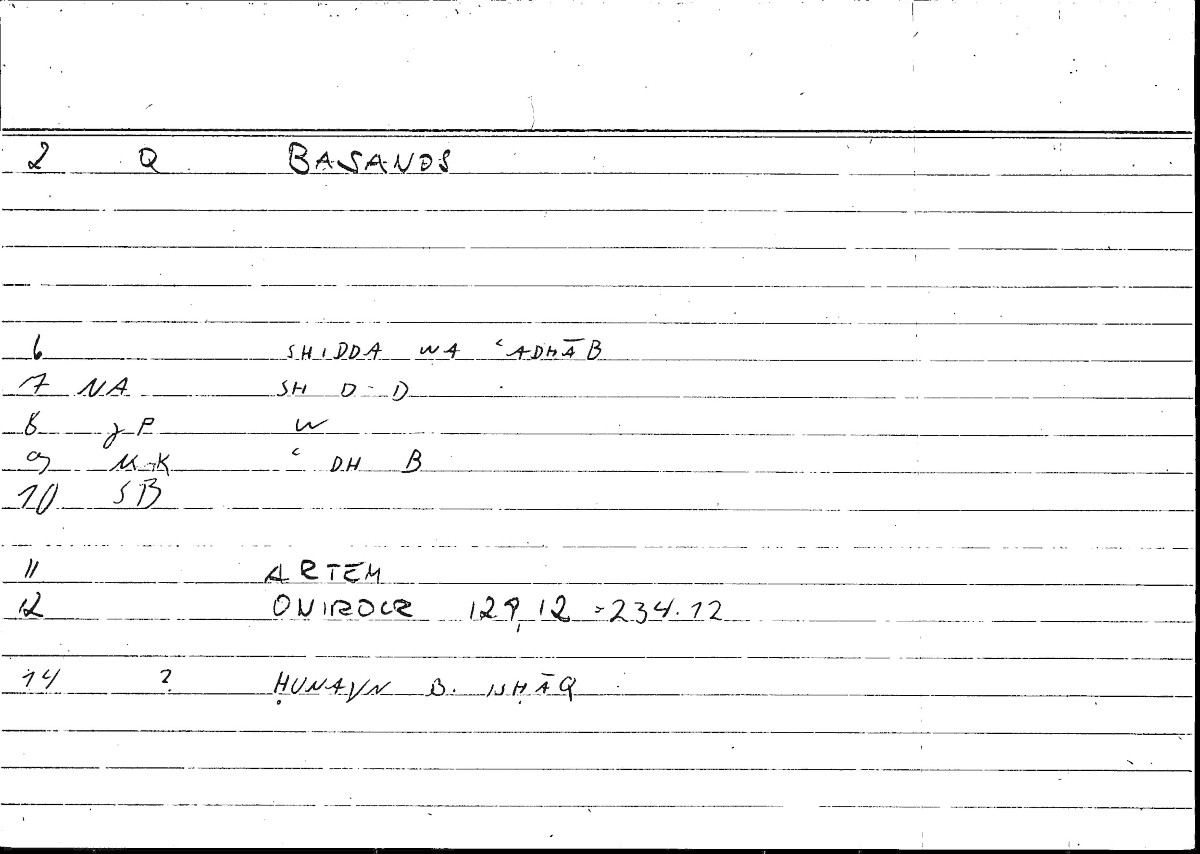 2 Q BASANOS
6 SHIDDA WA ʿADHĀB
7 NA SH D-D
8 γP W
9 MK ʿ DH B
10 SB
11 ARTEM
12 ONIROCR 129,12 = 234.12
14 ? ḤUNAYN B. ISḤĀQ